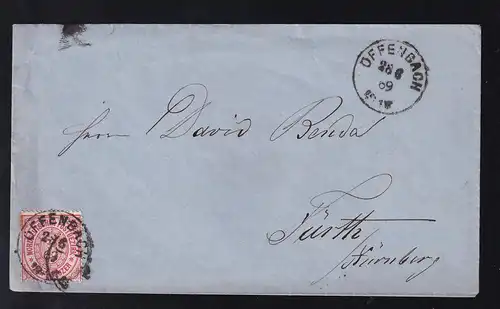 OFFENBACH
28 6
69
Herrn David Benda
Fürth
/Nürnberg
OFFENBACH